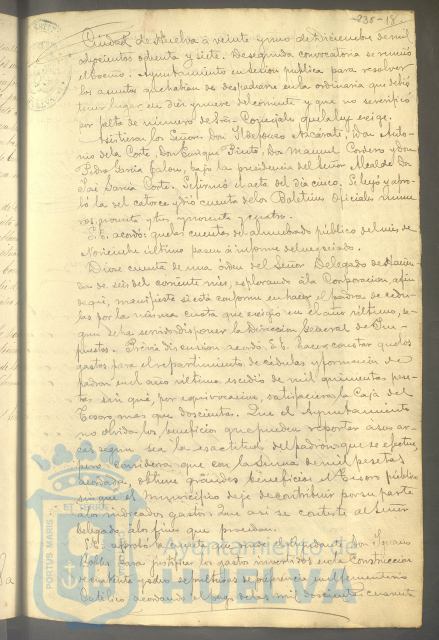 235-18
Ciudad de Huelva á veinte y uno de Diciembre de mil
ochocientos ochenta y siete. De segunda convocatoria se reunió
el Excmo. Ayuntamiento en sesion publica para resolver
los asuntos que habian de despacharse en la ordinaria que debió
tener lugar en diez y nueve del corriente y que no se verificó
por falta de número de Sres. Concejales que la ley exige.
Asistieron los Señores Don Ildefonso Azcárate, Don Anto-
nio de la Corte, Don Enrique Pinto, Don Manuel Cordero y Don
Pedro Garcia Jalon, bajo la presidencia del Señor Alcalde Don
José Garcia Corte. Se firmó el acta del dia cinco. Se leyó y apro-
bó la del catorce y dió cuenta de los Boletines Oficiales núme-
ros noventa y tres y noventa y cuatro.
S.E. acordó: que las cuentas del alumbrado público del mes de
Noviembre último pasen á informe del negociado.
Dióse cuenta de una órden del Señor Delegado de Hacien-
da de seis del corriente mes, explorando á la Corporacion, a fin
de que, manifieste si está conforme en hacer el padron de cedu-
las por la misma cuota que exigió en el año último, se-
gun se ha servido disponer la Direccion General de Im-
puestos. Prévia discusion acordó S.E. hacer constar que los
gastos para el repartimiento de cédulas y formacion de
padron en el año último excedió de mil quinientas pese-
tas sin que, por equivocacion, satisfaciera la Caja del
Tesoro, mas que doscientas. Que el Ayuntamiento
no olvida los beneficios que pueden reportar a sus ar-
cas segun sea la exactitud del padron que se efectue,
pero considera que con la suma de mil pesetas
acordada, obtiene grandes beneficios el Tesoro público
sin que el municipio deje de contribuir por su parte
a los indicados gastos. Que asi se conteste al Señor
Delegado á los fines que procedan.
S.E. aprobó la cuenta que rinde el Sobrestante Don Ignacio
Robles para justificar los gastos invertidos en la Construccion
de cuarenta y ocho sepulturas de preferencia en el Cementerio
Católico acordando el pago de las mil doscientas cuarenta
Ayuntamiento de
HUELVA
PORTUS MARIS